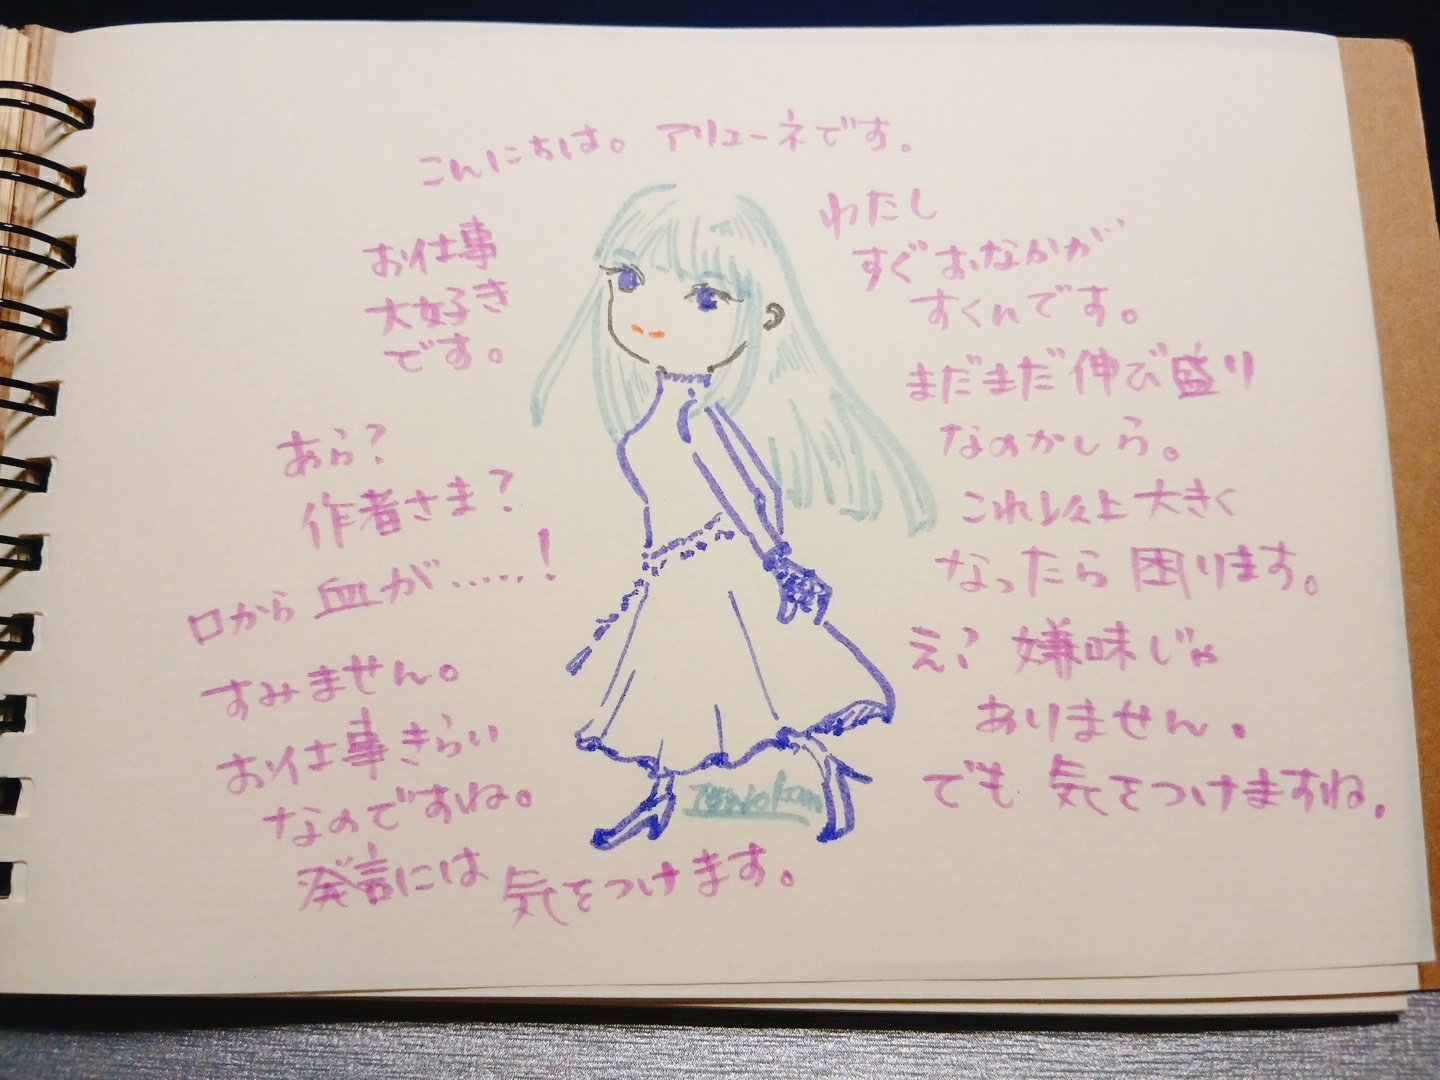 こんにちは。アリューネです。
お仕事
大好き
です。
あら?
作者さま?
口から血が……!
すみません。
お仕事きらい
なのですね。
発言には気をつけます。
わたし
すぐおなかが
すくんです。
まだまだ伸び盛り
なのかしら。
これ以上大きく
なったら困ります。
え?嫌味じゃ
ありません。
でも気をつけますね。